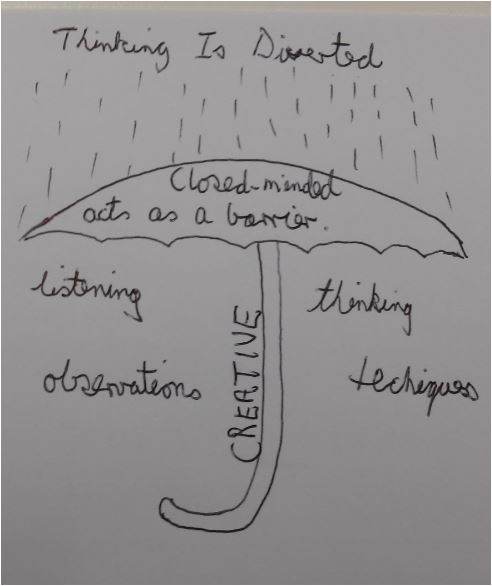 Thinking Is Disserted
Closed-minded
acts as a barrier.
listening
thinking
CREATIVE
observations
techiques